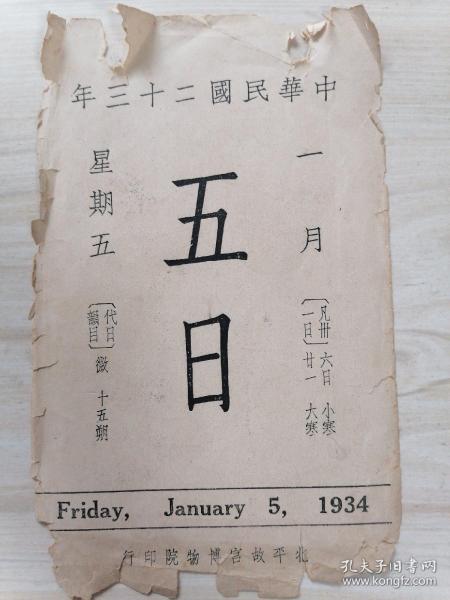 中華民國二十三年
一月
〔凡卅一日〕
六日 小寒
廿一 大寒
五日
星期五
〔代日韻目〕
微 十五朔
Friday, January 5, 1934
北平故宮博物院印行
孔夫子旧书网
www.kongfz.com